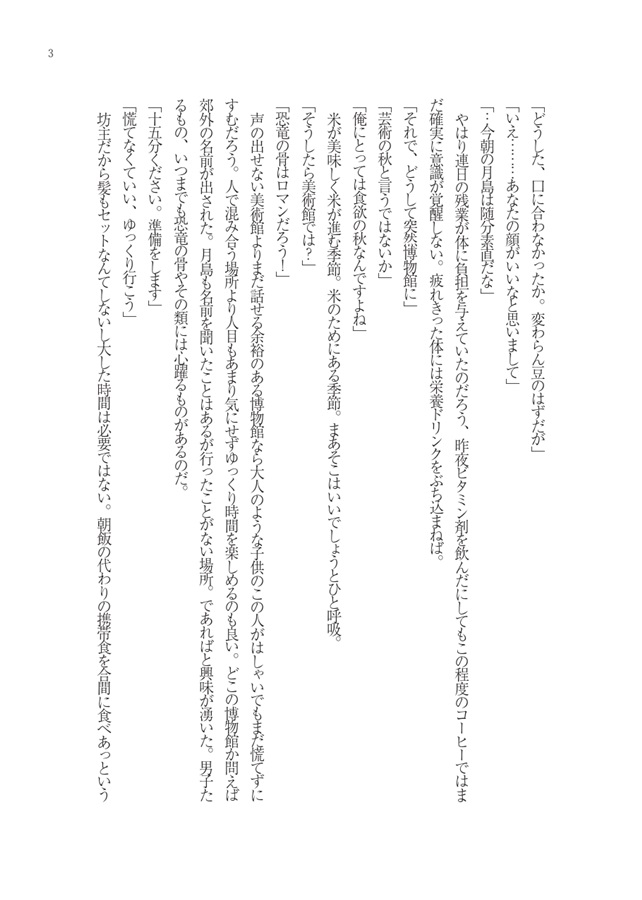 3
「どうした、口に合わなかったか。変わらん豆のはずだが」
「いえ………あなたの顔がいいなと思いまして」
「…今朝の月島は随分素直だな」
やはり連日の残業が体に負担を与えていたのだろう、昨夜ビタミン剤を飲んだにしてもこの程度のコーヒーではま
だ確実に意識が覚醒しない。疲れきった体には栄養ドリンクをぶち込まねば。
「それで、どうして突然博物館に」
「芸術の秋と言うではないか」
「俺にとっては食欲の秋なんですよね」
米が美味しく米が進む季節。米のためにある季節。まあそこはいいでしょうとひと呼吸。
「そうしたら美術館では？」
「恐竜の骨はロマンだろう！」
声の出せない美術館よりまだ話せる余裕のある博物館なら大人のような子供のこの人がはしゃいでもまだ慌てずに
すむだろう。人で混み合う場所より人目もあまり気にせずゆっくり時間を楽しめるのも良い。どこの博物館か問えば
郊外の名前が出された。月島も名前を聞いたことはあるが行ったことがない場所。であればと興味が湧いた。男子た
るもの、いつまでも恐竜の骨やその類には心躍るものがあるのだ。
「十五分ください。準備をします」
「慌てなくていい、ゆっくり行こう」
坊主だから髪もセットなんてしないし大した時間は必要ではない。朝飯の代わりの携帯食を合間に食べあっという